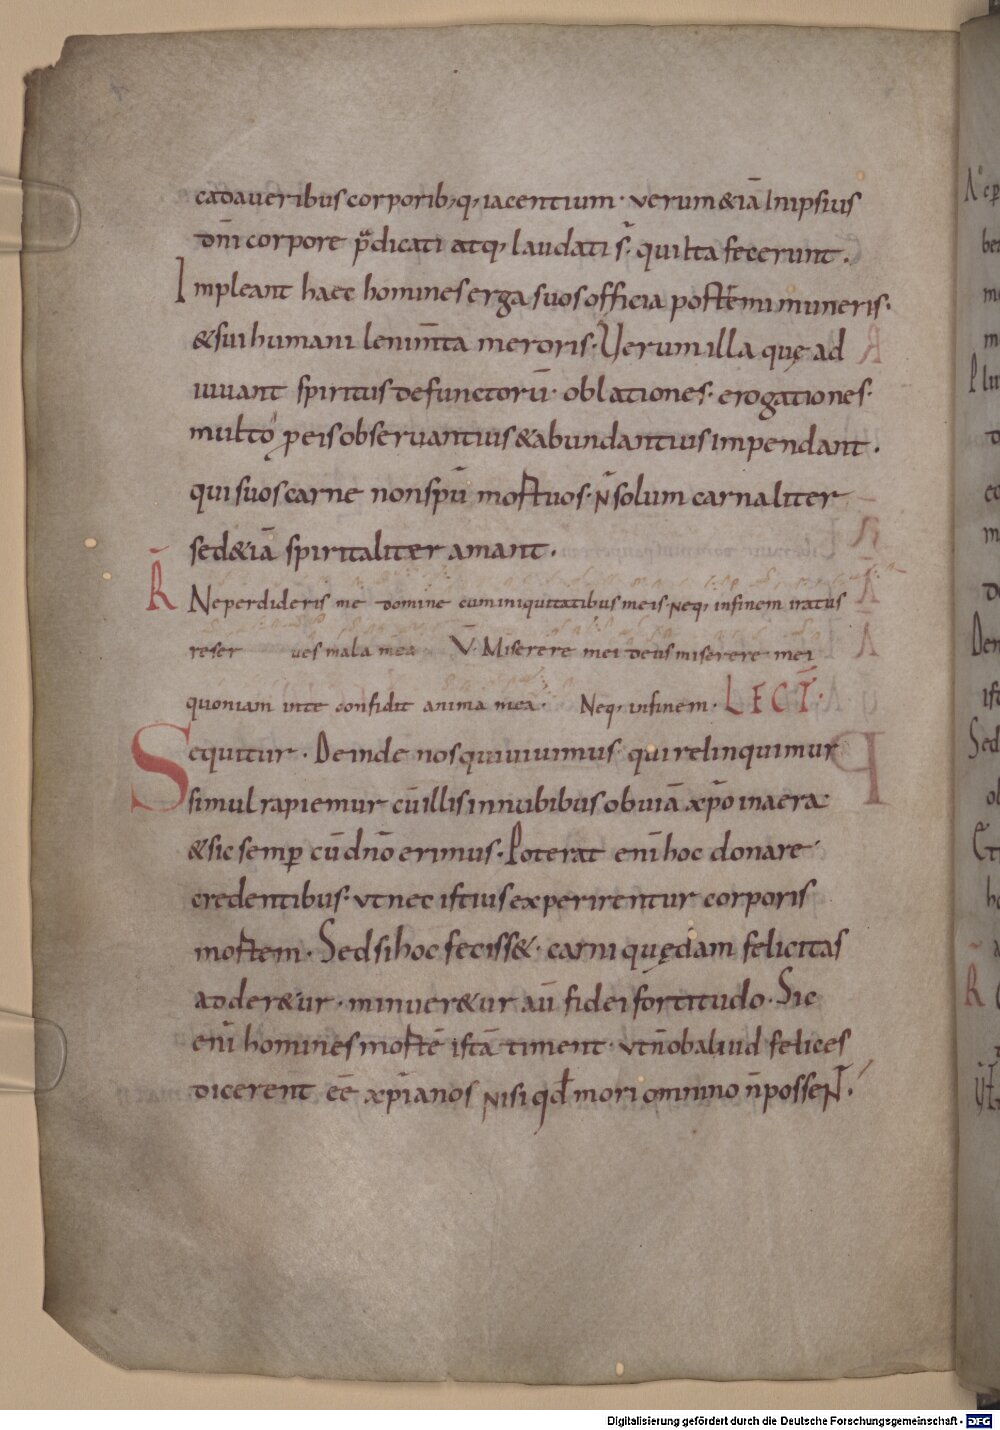 cadaueribus corporib; q; iacentium · verum &iā Inipsius
dn̄i corpore p̄dicati atq; laudati s̄ · qui ita fecerunt .
Impleant haec homines erga suos officia postremi muneris ·
& sui humani lenim̄ta meroris · Verum illa quę ad
iuuant spiritus defunctorū · oblationes · erogationes ·
multo p eis obseruantius & abundantius impendant .
qui suos carne non spū mortuos · n̄ solum carnaliter
sed &iā spiritaliter amant .
R̄ Ne perdideris me domine cum iniquitatibus meis · neq; infinem iratus
reser ues mala mea V̄ · Miserere mei deus miserere mei
quoniam in te confidit anima mea · Neq; infinem · LECT̄ ·
Sequitur · Deinde nos qui uiuimus · qui relinquimur
simul rapiemur cū illis in nubibus obuiā xp̄o in aera ·
& sic semp cū dn̄o erimus · Poterat eni̅ hoc donare
credentibus · vt nec istius experirentur corporis
mortem · Sed si hoc feciss& · carni quędam felicitas
adder&ur · minuer&ur aū fidei fortitudo · Sic
eni̅ homines mortē istā timent · vt n̄ ob aliud felices
dicerent eē xp̄ianos nisi qd mori omnino n̄ possent .
Digitalisierung gefördert durch die Deutsche Forschungsgemeinschaft - DFG